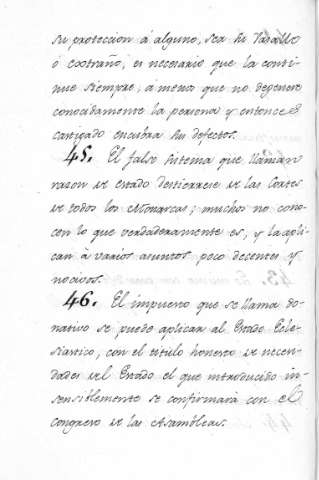 su proteccion á alguno, sea su Vasallo
ó extraño, es necesario que la conti-
nue siempre, á menos que no degenere
conocidamente la persona y entonces
castigado encubra su defectos.
45. El falso sistema que llaman
razon de estado destierrese de las Cortes
de todos los Monarcas; muchos no cono-
cen lo que verdaderamente es, y la apli-
can á varios asuntos poco decentes y
nocivos.
46. El impuesto que se llama do-
nativo se puede aplicar al Estado Ecle-
siastico, con el titulo honesto de necesi-
dades del Estado el que introducido in-
sensiblemente se confirmará con el
Congreso de las Asambleas.